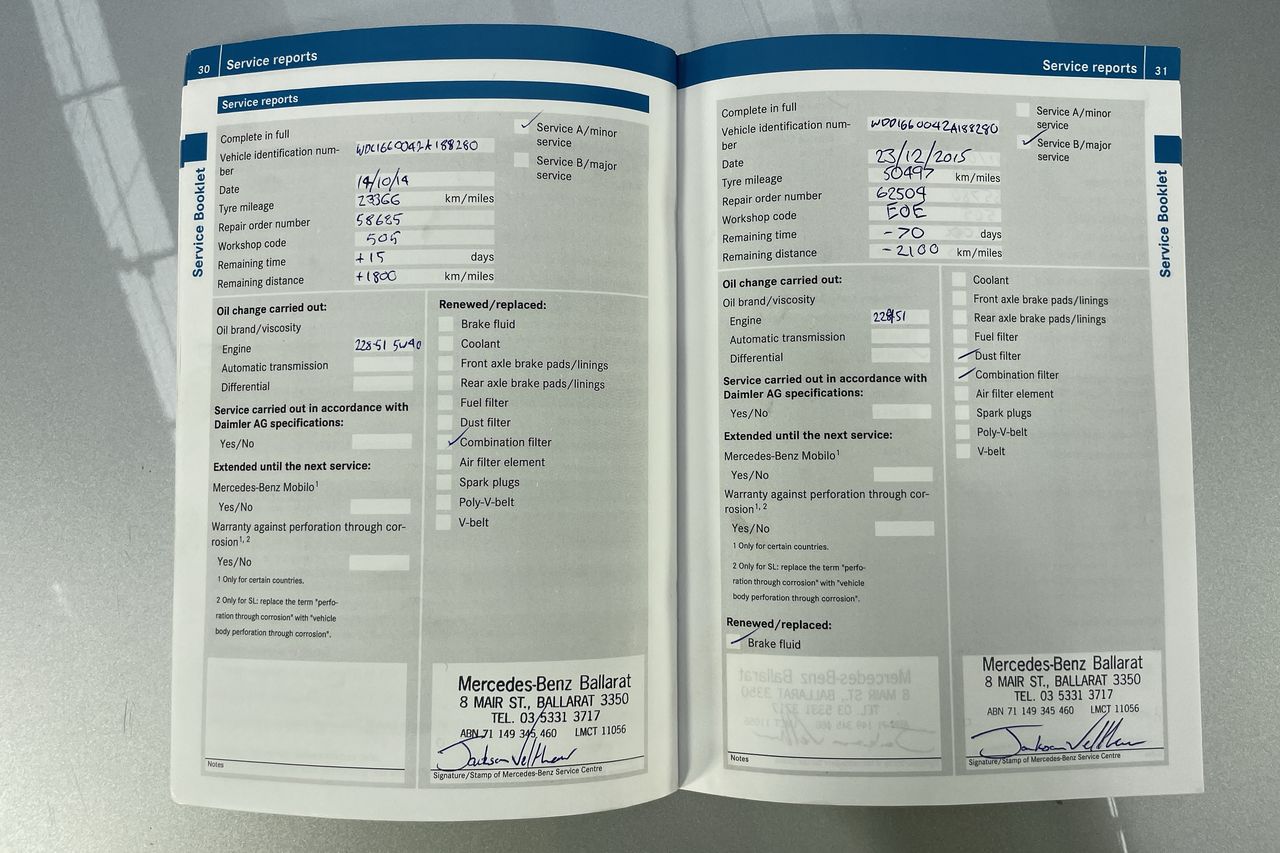 30 Service reports
Service reports
Complete in full
Vehicle identification num-
ber WDC1660042A188280
Date 14/10/14
Tyre mileage 23366 km/miles
Repair order number 58685
Workshop code 505
Remaining time +15 days
Remaining distance +1800 km/miles
Service A/minor
service
Service B/major
service
Oil change carried out:
Oil brand/viscosity
Engine 228-51 5W40
Automatic transmission
Differential
Service carried out in accordance with
Daimler AG specifications:
Yes/No
Extended until the next service:
Mercedes-Benz Mobilo1
Yes/No
Warranty against perforation through cor-
rosion1, 2
Yes/No
1 Only for certain countries.
2 Only for SL: replace the term "perfo-
ration through corrosion" with "vehicle
body perforation through corrosion".
Renewed/replaced:
Brake fluid
Coolant
Front axle brake pads/linings
Rear axle brake pads/linings
Fuel filter
Dust filter
Combination filter
Air filter element
Spark plugs
Poly-V-belt
V-belt
Notes
Mercedes-Benz Ballarat
8 MAIR ST., BALLARAT 3350
TEL. 03 5331 3717
ABN 71 149 345 460 LMCT 11056
Signature/Stamp of Mercedes-Benz Service Centre
Service Booklet
Service reports 31
Complete in full
Vehicle identification num-
ber WDD1660042A188280
Date 23/12/2015
Tyre mileage 50497 km/miles
Repair order number 62509
Workshop code EOE
Remaining time -70 days
Remaining distance -2100 km/miles
Service A/minor
service
Service B/major
service
Oil change carried out:
Oil brand/viscosity
Engine
Automatic transmission
Differential
Service carried out in accordance with
Daimler AG specifications:
Yes/No
Extended until the next service:
Mercedes-Benz Mobilo1
Yes/No
Warranty against perforation through cor-
rosion1, 2
Yes/No
1 Only for certain countries.
2 Only for SL: replace the term "perfo-
ration through corrosion" with "vehicle
body perforation through corrosion".
Renewed/replaced:
Brake fluid
Coolant
Front axle brake pads/linings
Rear axle brake pads/linings
Fuel filter
Dust filter
Combination filter
Air filter element
Spark plugs
Poly-V-belt
V-belt
Notes
Mercedes-Benz Ballarat
8 MAIR ST., BALLARAT 3350
TEL. 03 5331 3717
ABN 71 149 345 460 LMCT 11056
Signature/Stamp of Mercedes-Benz Service Centre
Service Booklet